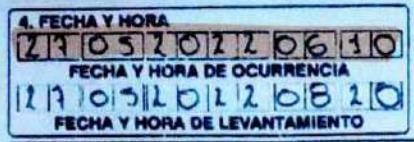 4. FECHA Y HORA
27 05 2022 06 10
FECHA Y HORA DE OCURRENCIA
27 05 2022 08 20
FECHA Y HORA DE LEVANTAMIENTO